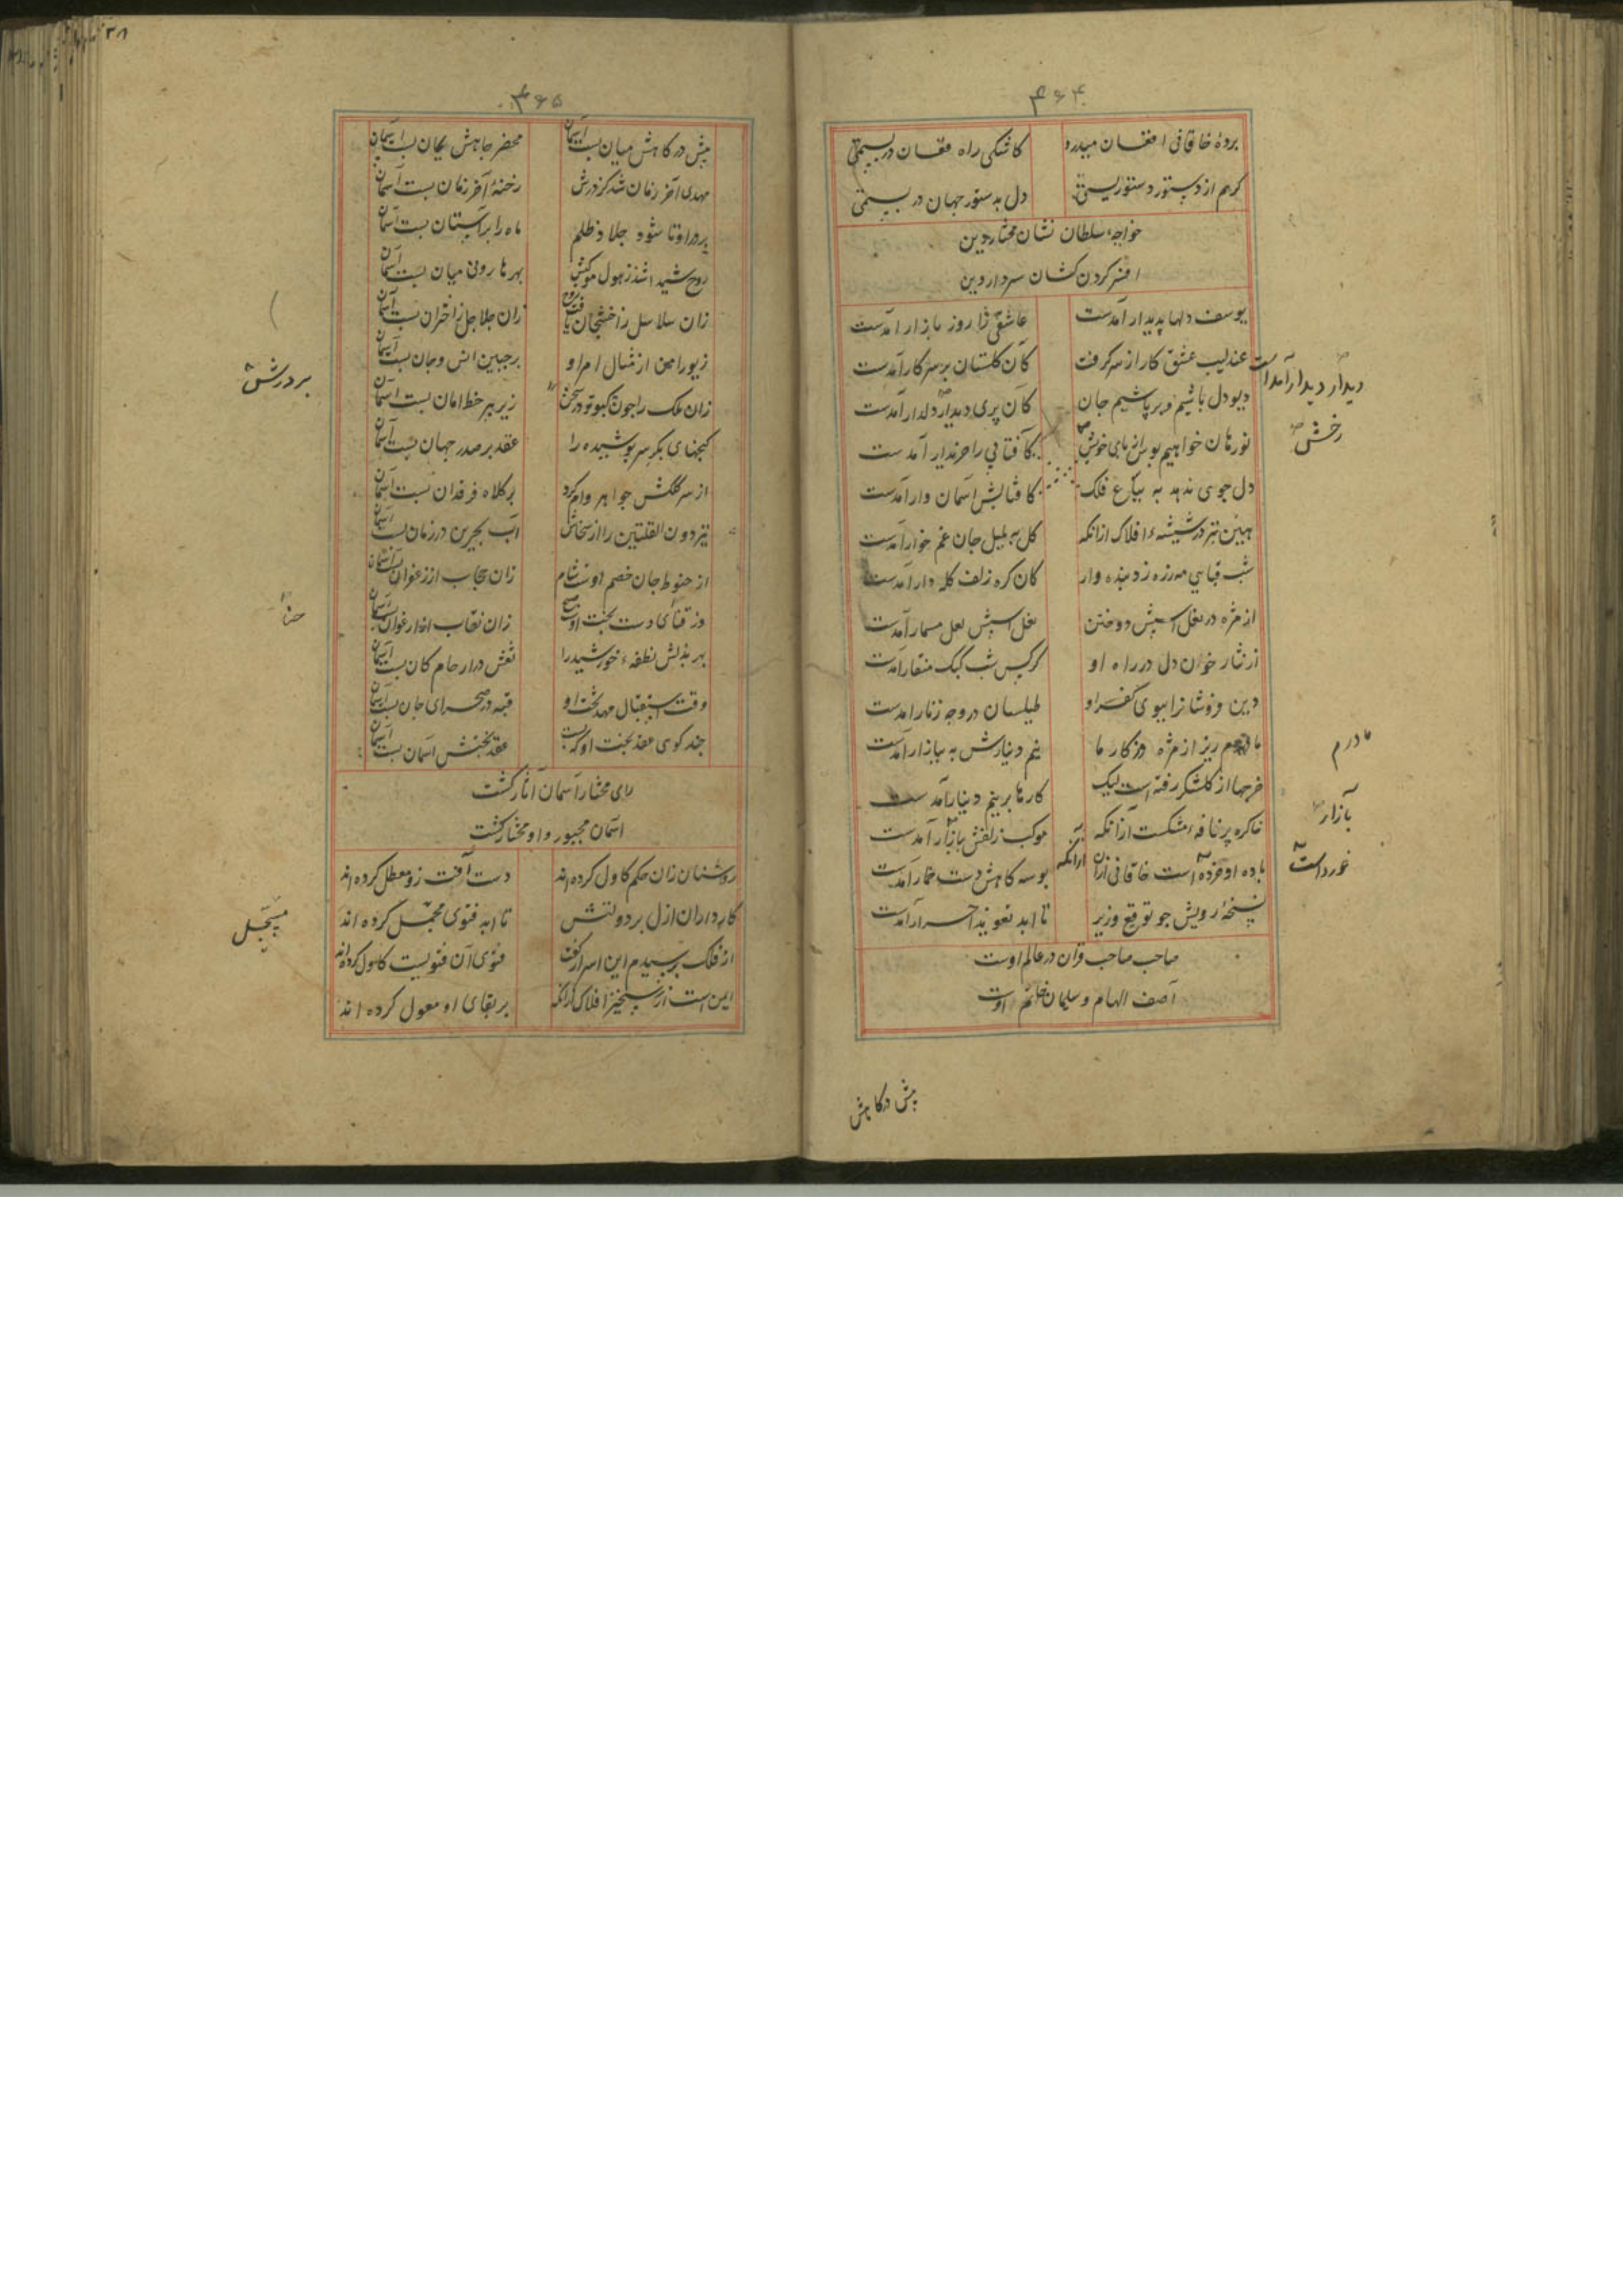 ۴۶۴
بردهٔ خاقانی افغان میدرد کاشکی راه فغان در بستمی
کریم از دستور دستوریستی دل بدستور جهان در بستمی
خواجهٔ سلطان نشان مختار دین
افسر کردن کشان سردار دین
یوسف دلها پدیدار آمدست عاشقی را روز بازار آمدست
عندلیب عشق کار از سر کرفت کان کلستان بر سر کار آمدست
دیو دل باشیم و بر پاشیم جان کان پری دیدار دلدار آمدست
نورهان خواهیم بوس از پای خوش کافتابی را خریدار آمدست
دل جوی ندهد به بیاع فلک کافتابش آسمان وار آمدست
هین بتر در شیشهٔ افلاک ازانکه کل به بلبل جان غم خوار آمدست
شب قبای مه زره زد بنده وار کان کره زلف کله دار آمدست
از مژه در نعل اسبش دوختن نعل اسبش لعل مسمار آمدست
از نثار خون دل در راه او کرکس شب کبک منقار آمدست
دین فروشانرا ببوی کفر او طیلسان در وجه زنار آمدست
ما درم ریز از مژه وز کار ما نیم دینارش به بازار آمدست
خرجها از کلشکر رفته است لیک کارها بر نیم دینار آمدست
خاکره پر نافهٔ مشکست ازانکه موکب زلفش ببازار آمدست
باده او خورده است خاقانی ازان ازانکه بوسه کاهش دست خمار آمدست
نسخهٔ رویش جو توقیع وزیر تا ابد تعویذ احرار آمدست
صاحب صاحب قران در عالم اوست
آصف الهام و سلیمان خاتم اوست
دیدار دیدار آمداست
رخش
ما درم
بازار
خورداست
پیش درکاهش
۴۶۵
پیش درکاهش میان بست آسمان محضر جاهش بجان بست آسمان
مهدی آخر زمان شد کز درش رخنهٔ آخر زمان بست آسمان
بر در او تا شود جلاد ظلم ماه را بر آستان بست آسمان
روح شیدا شد ز هول موکبش بهر هارونی میان بست آسمان
زان سلاسل زان جلاجل ز اختران بست آسمان
زیور امن از مثال امر او بر جبین انس و جان بست آسمان
زان ملک را جون کبوتر در سخن زیر پر خط امان بست آسمان
کنجهای بکر سر پوشیده را عقد بر صدر جهان بست آسمان
از سر کلکش جواهر وام کرد بر کلاه فرقدان بست آسمان
نیز دون القلتین را از سخاش آب بحرین در زمان بست آسمان
از حنوط جان خصم اوست شام زان حجاب از زعفران بست آسمان
وز قنای دست بخت اوست صبح زان نقاب از ارغوان بست آسمان
بهر بذلش نطفهٔ خورشید را نقش در ارحام کان بست آسمان
وقت استقبال مهد بخت او قبه در صحرای جان بست آسمان
جند کوی عقد بخت او که بست عقد بختش آسمان بست آسمان
رای مختار آسمان آثار کشت
آسمان مجبور و او مختار کشت
روشنان زان حکم کاول کرده اند دست آفت زو معطل کرده اند
کارداران ازل بر دولتش تا ابد فتوی مجمل کرده اند
از فلک پرسیدم این اسرار کفت فتوی آن فتویست کاول کرده اند
ایمن است از رستخیز افلاک ازانکه بر بقای او معول کرده اند
بر درش
حنا
مسجل